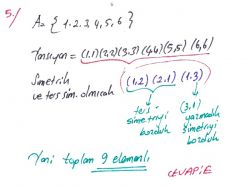 5./ A= { 1.2.3,4,5,6 }
Yansıyan = (1,1)(2,2)(3,3)(4,4)(5,5) (6,6)
Simetrik (1,2) (2,1) (1,3)
ve ters sim. olmıcak
ters (3,1)
simetriyi yazmadık
bozduk simetriyi
bozduk
Yani toplam 9 elemanlı
CEVAP:E